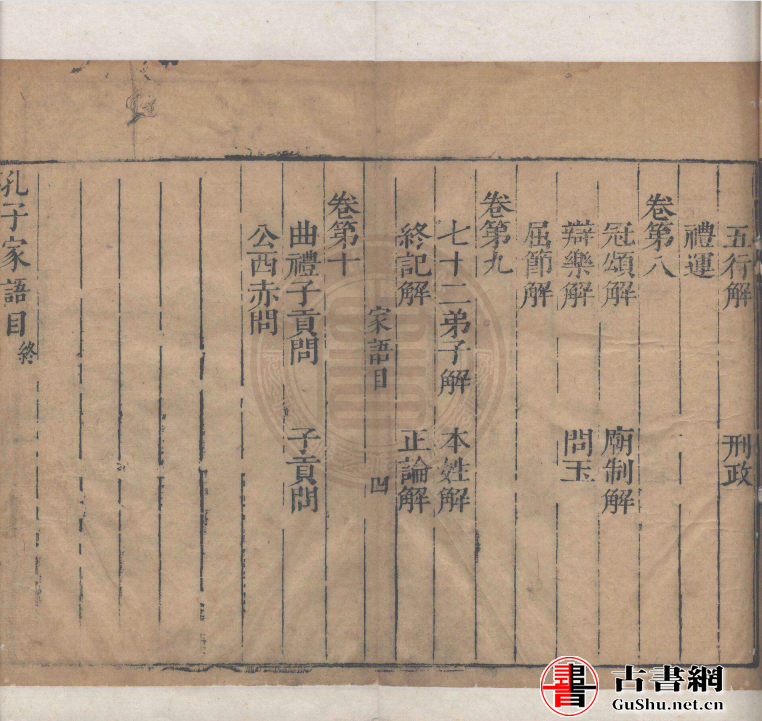 五行解 刑政
禮運
卷第八
冠頌解 廟制解
辯樂解 問玉
屈節解
卷第九
七十二弟子解 本姓解
終記解 正論解
家語目 四
卷第十
曲禮子貢問 子貢問
公西赤問
孔子家語目終
古書網
GuShu.net.cn